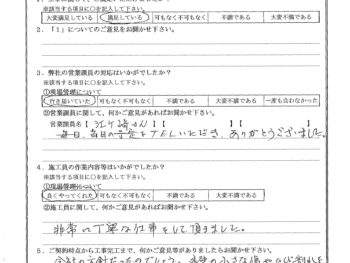 ※該当する項目に○を記入して下さい。
大変満足している 満足している 可もなく不可もなく 不満である 大変不満である
2．「1」についてのご意見をお聞かせ下さい。
3．弊社の営業課員の対応はいかがでしたか？
※該当する項目に○を記入して下さい。
①現場管理について
行き届いていた 可もなく不可もなく 不満である 大変不満である 一度も会わなかった
②営業課員に関して、何かご意見があればお聞かせ下さい。
営業課員名【 さん】【 】【 】
毎日、当日の予定をTELいただき、ありがとうございました。
4．施工員の作業内容等はいかがでしたか？
※該当する項目に○を記入して下さい。
①現場管理について
良くやってくれた 可もなく不可もなく 不満である 大変不満である
②施工員に関して、何かご意見があればお聞かせ下さい。
非常に丁寧な仕事をして頂きました。
5．ご契約時点から工事完工まで、何かご意見等がありましたらお聞かせ下さい。